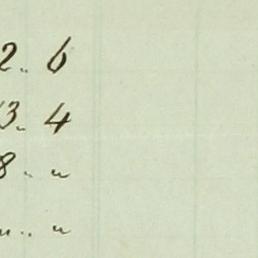 2 .. 6
3 .. 4
8 .. "
" .. "